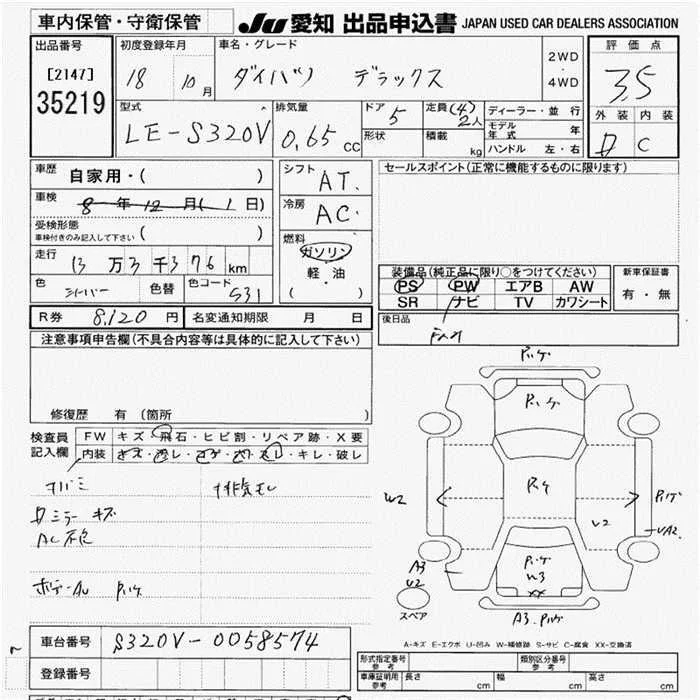 車内保管・守衛保管
JU 愛知 出品申込書 JAPAN USED CAR DEALERS ASSOCIATION
出品番号
[2147]
35219
初度登録年月
18 10月
車名・グレード
ダイハツ デラックス
2WD
・
4WD
評価点
3.5
外装 内装
C
型式
LE-S320V
排気量
0.65 cc
ドア
5
形状
定員(4)
2人
積載
kg
ディーラー・並行
モデル年式 年
ハンドル 左・右
車歴
自家用・( )
車検
8年12月(1日)
受検形態
車検付きのみ記入して下さい ( )
走行
13万3千376km
色
シルバー
色替
色コード
S31
シフト
AT
冷房
AC
燃料
ガソリン
軽・油
( )
セールスポイント(正常に機能するものに限ります)
装備品(純正品に限り○をつけてください)
PS PW エアB AW
SR ナビ TV カワシート
新車保証書
有・無
後日品
R券 8,120 円
名変通知期限 月 日
注意事項申告欄(不具合内容等は具体的に記入して下さい)
修復歴 有(箇所 )
検査員記入欄
FW キズ・飛石・ヒビ割・リペア跡・X要
内装 キズ・汚レ・コゲ・穴・スレ・キレ・破レ
排気モレ
ミラー キズ
AC不良
ボデーAU
W2
U2
W3
XX
A3
U2
スペア
A-キズ E-エクボ U-凹み W-補修跡 S-サビ C-腐食 XX-交換済
車台番号
S320V-0058574
登録番号
形式指定番号
参考
類別区分番号
参考
車庫証明用
参考
長さ cm
幅 cm
高さ cm